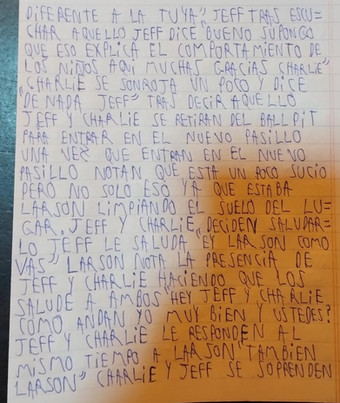 DIFERENTE A LA TUYA" JEFF TRAS ESCU=
CHAR AQUELLO JEFF DICE "BUENO SUPONGO
QUE ESO EXPLICA EL COMPORTAMIENTO DE
LOS NIÑOS AQUI MUCHAS GRACIAS CHARLIE"
CHARLIE SE SONROJA UN POCO Y DICE
"DE NADA JEFF" TRAS DECIR AQUELLO
JEFF Y CHARLIE SE RETIRAN DEL BALL PIT
PARA ENTRAR EN EL NUEVO PASILLO
UNA VEZ QUE ENTRAN EN EL NUEVO
PASILLO NOTAN QUE ESTA UN POCO SUCIO
PERO NO SOLO ESO YA QUE ESTABA
LARSON LIMPIANDO EL SUELO DEL LU=
GAR. JEFF Y CHARLIE, DECIDEN SALUDAR=
LO JEFF LE SALUDA "EY LARSON COMO
VAS" LARSON NOTA LA PRESENCIA DE
JEFF Y CHARLIE HACIENDO QUE LOS
SALUDE A AMBOS "HEY JEFF Y CHARLIE
COMO ANDAN YO MUY BIEN Y USTEDES?
JEFF Y CHARLIE LE RESPONDEN AL
MISMO TIEMPO A LARSON "TAMBIEN
LARSON" CHARLIE Y JEFF SE SOPRENDEN